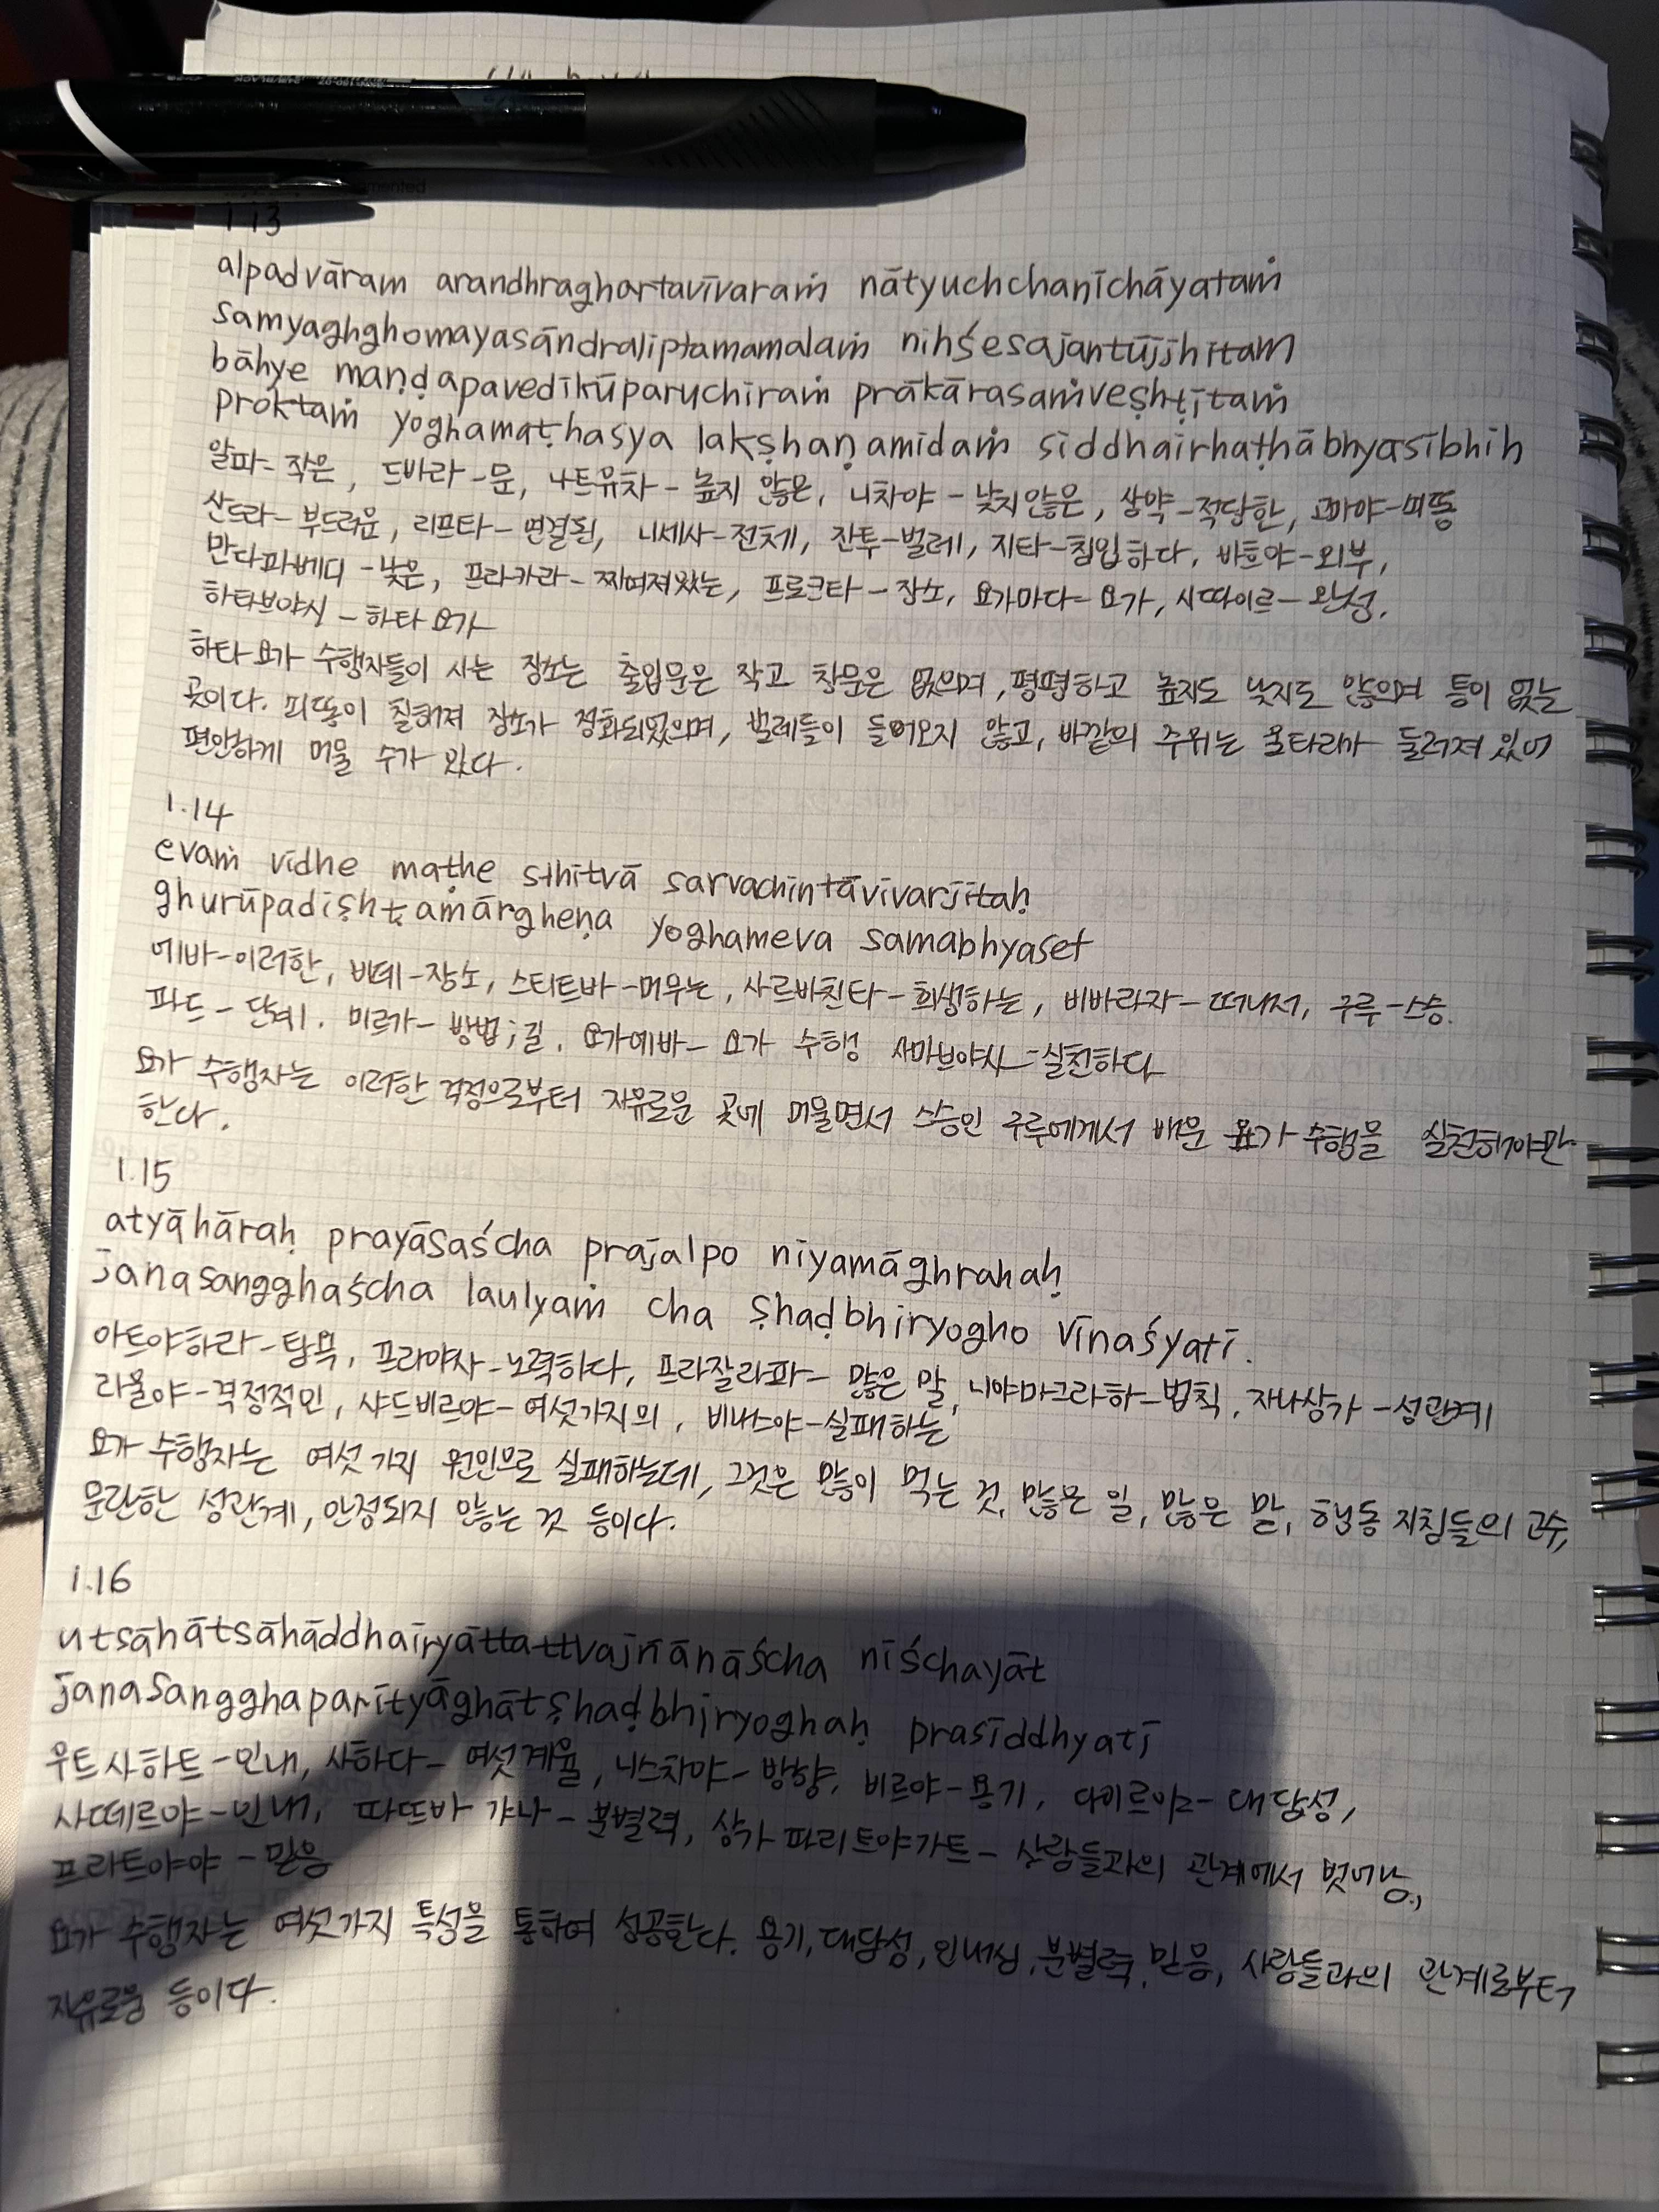 1.13
alpadvāram arandhraghartavīvaraṁ nātyuchchanīchāyataṁ
samyaghghomayasāndraliptamamalaṁ nihśesajantūjjhitam
bāhye maṇḍapavedīkūparuchiraṁ prākārasaṁveṣhṭitaṁ
proktaṁ yoghamaṭhasya lakṣhaṇamidaṁ siddhairhaṭhābhyāsibhih
알파-작은, 드바라-문, 나트유차-높지 않은, 니차야-낮지않은, 삼약-적당한, 고마야-피똥
산드라-부드러운, 리프타-연결된, 니세사-전체, 잔투-벌레, 지타-침입하다, 바흐야-외부,
만다파베디-낮은, 프라카라-찌여져있는, 프로크타-장소, 요가마다-요가, 시따이르-완성,
하타브야시-하타요가
하타요가 수행자들이 사는 장소는 출입문은 작고 창문은 없으며, 평평하고 높지도 낮지도 않으며 틈이 없는
곳이다. 피똥이 칠해져 장소가 정화되었으며, 벌레들이 들어오지 않고, 바깥의 주위는 울타리가 둘러져 있어
편안하게 머물 수가 있다.
1.14
evaṁ vidhe maṭhe sthitvā sarvachintāvivarjitaḥ
ghurūpadiṣhṭamārgheṇa yoghameva samabhyaset
에바-이러한, 비데-장소, 스티트바-머무는, 사르바친타-희생하는, 비바라자-떠나서, 구루-스승.
파드-단계. 미르가-방법;길. 요가에바-요가 수행 사마브야사-실천하다
요가 수행자는 이러한 걱정으로부터 자유로운 곳에 머물면서 스승인 구루에게서 배운 요가 수행을 실천해야만
한다.
1.15
atyāhāraḥ prayāsaścha prajalpo niyamāghrahaḥ
janasangghaścha laulyaṁ cha ṣhaḍbhiryogho vīnaśyati.
아트야하라-탐욕, 프라야사-노력하다, 프라잘라파-많은 말, 니야마그라하-법칙, 자나상가-성관계
라울야-걱정적인, 샤드비르야-여섯가지의, 비내스야-실패하는
요가 수행자는 여섯가지 원인으로 실패하는데, 그것은 많이 먹는 것, 많은 일, 많은 말, 행동 지침들의 고수,
문란한 성관계, 안정되지 않는 것 등이다.
1.16
utsāhātsāhāddhairyāttattvajñānāścha niśchayāt
janasangghaparityāghātṣhaḍbhiryoghaḥ prasiddhyati
우트사하트-인내, 사하다-여섯계율, 니스차야-방향, 비르야-용기, 다이르야-대담성,
사떼르야-인내, 따뜨바 갸나-분별력, 상가 파리트야가트-사람들과의 관계에서 벗어남,
프라트야야-믿음
요가 수행자는 여섯가지 특성을 통하여 성공한다. 용기, 대담성, 인내심, 분별력, 믿음, 사람들과의 관계로부터
자유로움 등이다.